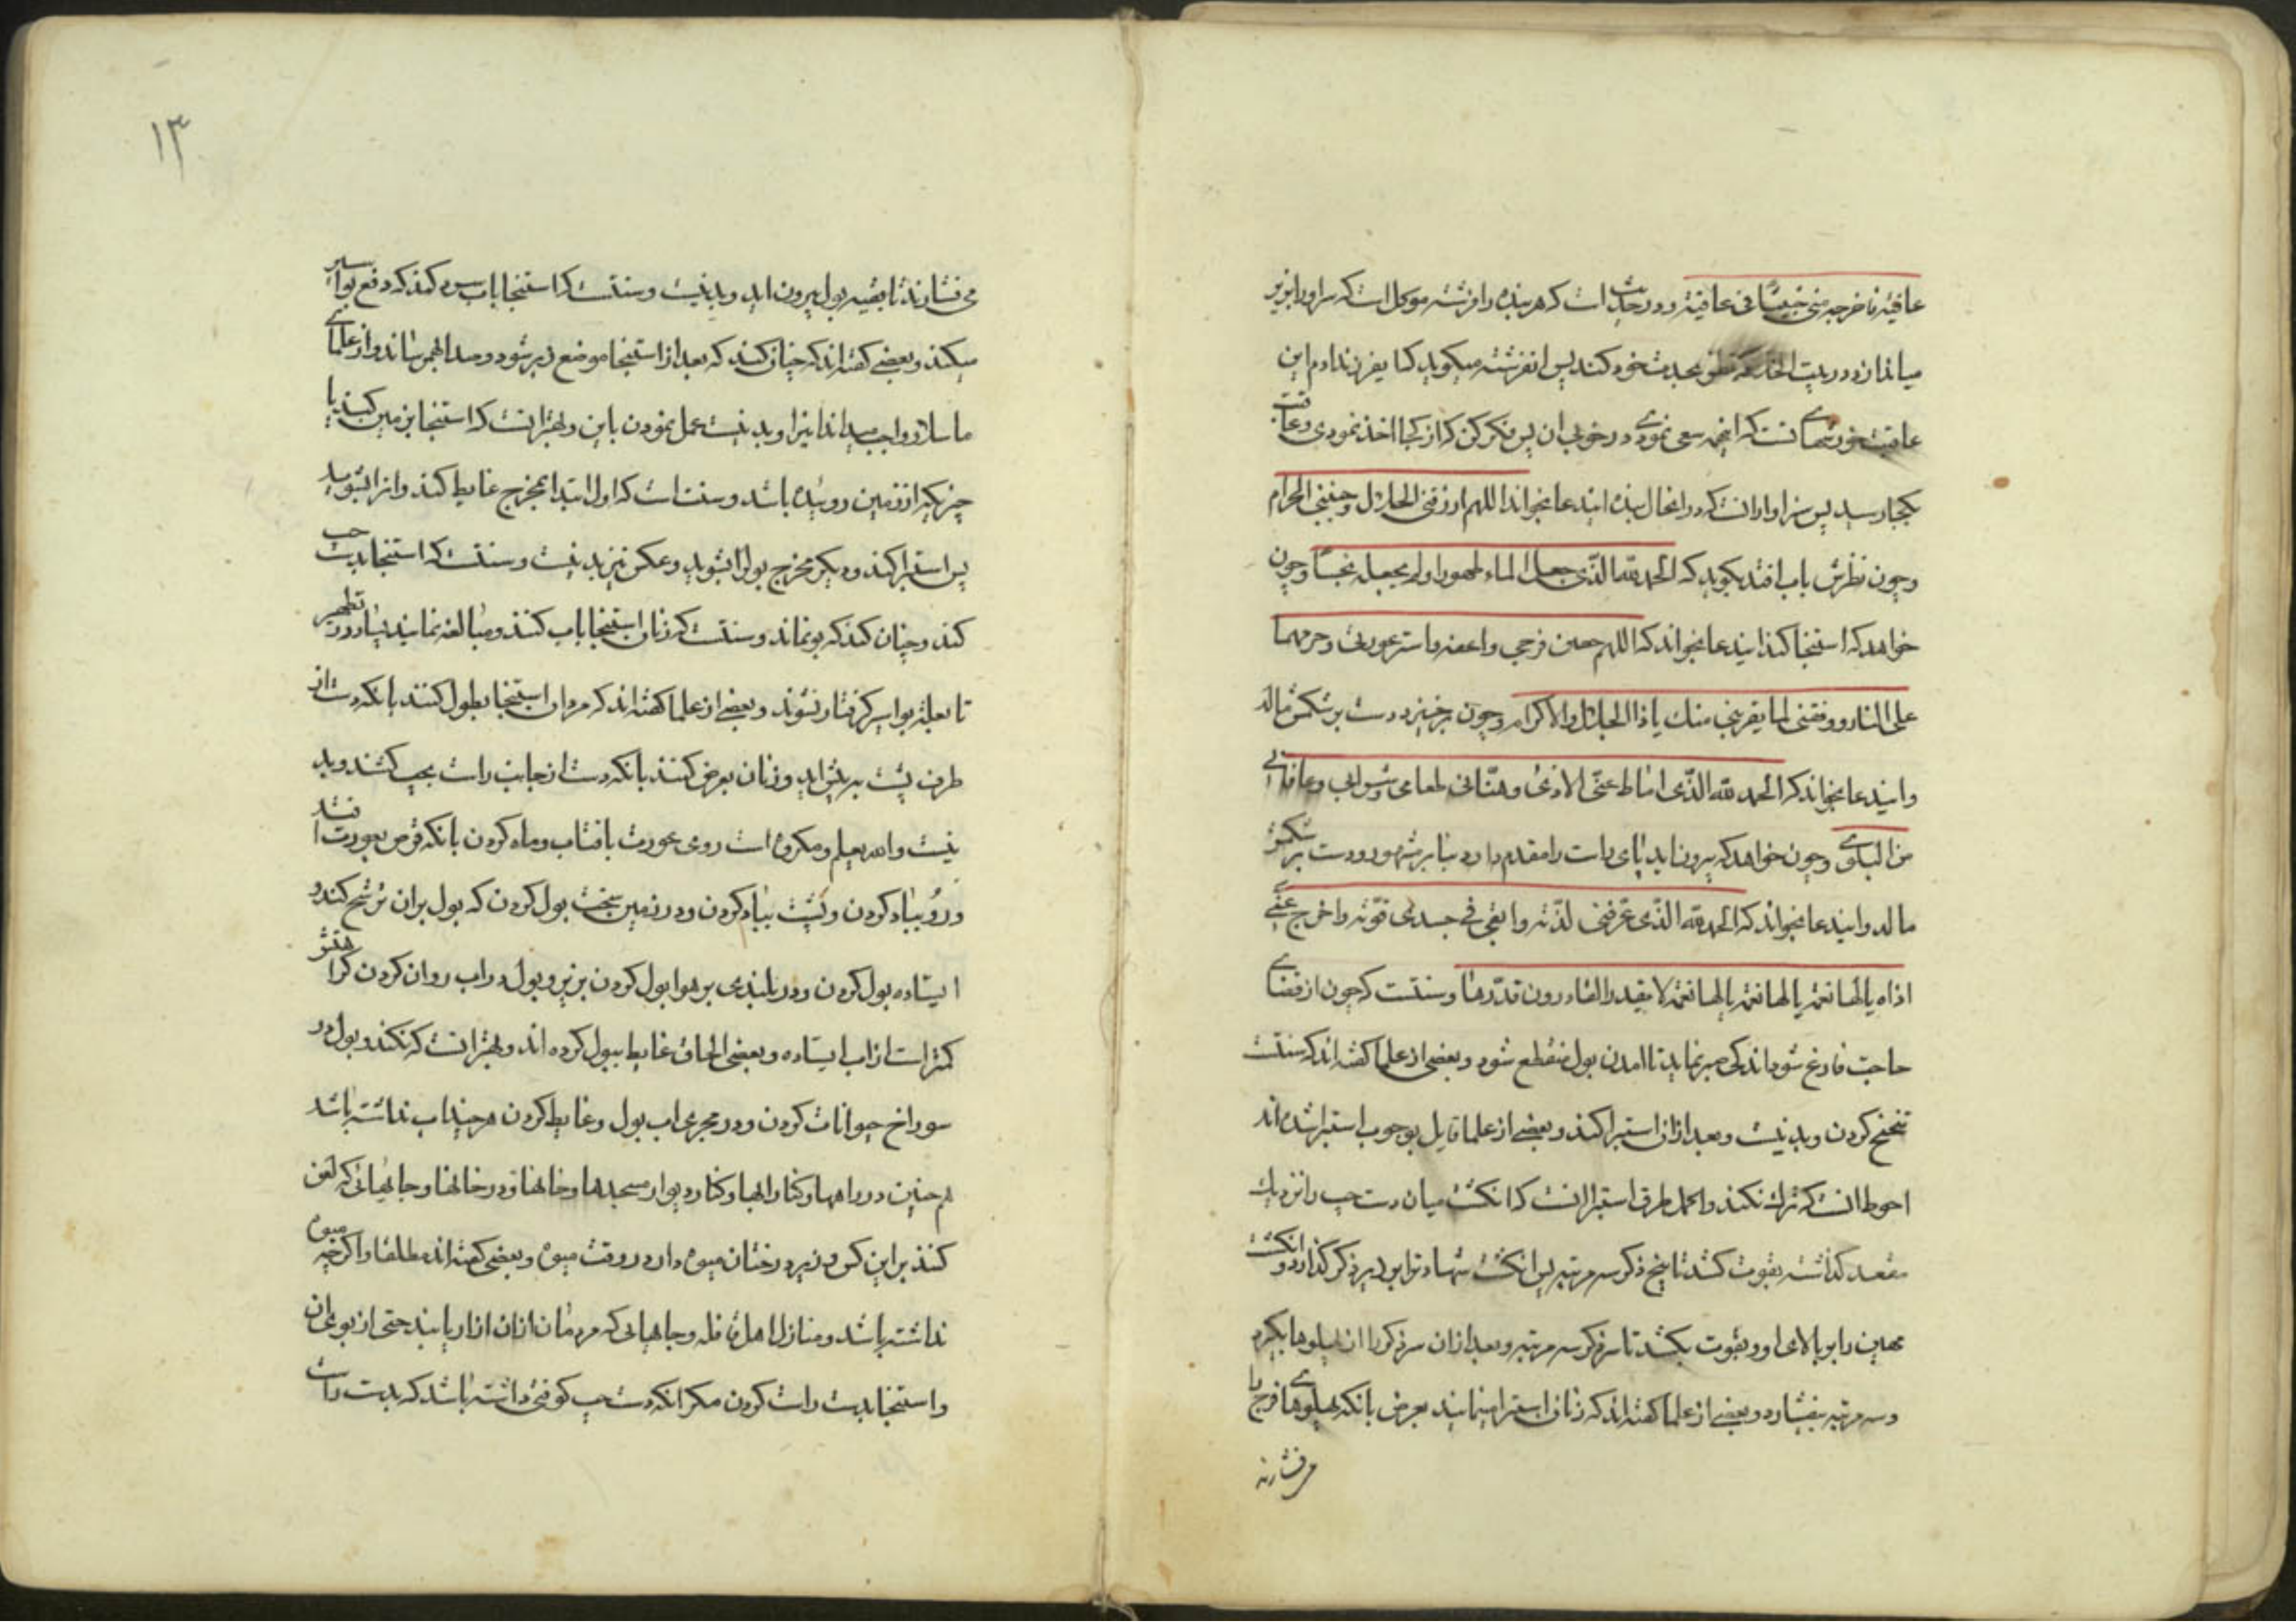 عافیة فاخرجه منی خبیثا فی عافیة و در حدیث است که هر بنده را فرشته موکل است که سر او را بزیر
میاندازد در بیت الخلا که نظر بحدث خود کند پس آن فرشته میکوید که ای فرزند ادم این
عاقبت خورشهای تست که اینهمه سعی نمودی در خوبی ان پس فکر کن که از کجا اخذ نمودی و عاقبت
بکجا رسید پس سزاوار انست که در انحال بنده ایندعا بخواند اللهم ارزقنی الحلال و جنبنی الحرام
و چون نظرش باب افتد بکوید که الحمد لله الذی جعل الماء طهورا و لم یجعله نجسا و چون
خواهد که استنجا کند ایندعا بخواند که اللهم حصن فرجی و اعفه و استر عورتی و حرمهما
علی النار و وفقنی لما یقربنی منک یا ذا الجلال و الاکرام و چون برخیزد دست بر شکمش مالد
و ایندعا بخواند که الحمد لله الذی اماط عنی الاذی و هنانی طعامی و شرابی و عافانی
من البلوی و چون خواهد که بیرون اید پای راست را مقدم دارد بنابر مشهور و دست بر شکمش
مالد و ایندعا بخواند که الحمد لله الذی عرفنی لذته و ابقی فی جسدی قوته و اخرج عنی
اذاه یا لها نعمة یا لها نعمة یا لها نعمة لا یقدر القادرون قدرها و سنتست که چون از قضای
حاجت فارغ شود اندکی صبر نماید تا امدن بول منقطع شود و بعضی از علما کفته اند که سنتست
تنحنح کردن و بد نیست و بعد از ان استبرا کند و بعضی از علما قایل بوجوب استبرا شده اند
احوط انست که ترک نکند و اکمل طرق استبرا انست که انکشت میان دست چپ را نزدیک
مقعد کذاشته بقوت کشد تا بیخ ذکر سه مرتبه پس انکشت شهادت را بر زیر ذکر کذارد و انکشت
مهین را بر بالای او و بقوت بکشد تا سر ذکر سه مرتبه و بعد از ان سر ذکر را از پهلوها بکیرد
و سه مرتبه بیفشارد و بعضی از علما کفته اند که زنان استبرا مینمایند بعرض بانکه پهلوهای فرج را
میفشارند
۱۳
می فشارند تا بقیه بول بیرون اید و بد نیست و سنتست که استنجا باب سرد کند که دفع بواسیر
میکند و بعضی کفته اند که چنان کند که بعد از استنجا موضع زبر شود و صدا بهم رساند و از علمای
ما سلار واجب میداند انرا و بد نیست عمل نمودن باین و بهتر انست که استنجا بزمین کند یا
چیزیکه از زمین روییده باشد و سنت است که اول ابتدا بمخرج غایط کند و انرا بشوید
پس استبرا کند و دیکر مخرج بول را بشوید و عکس نیز بد نیست و سنتست که استنجا بدست چپ
کند و چنان کند که بو نماند و سنتست که زنان استنجا باب کنند و مبالغه نمایند بسیار در تطهیر
تا بعلة بواسیر کرفتار نشوند و بعضی از علما کفته اند که مردان استنجا بطول کنند بانکه دست از
طرف پشت به پیش اید و زنان بعرض کنند بانکه دست از جانب راست بچپ کشند و بد
نیست و الله یعلم و مکروه است روی عورت بافتاب و ماه کردن بانکه قرص بعورت افتد
و رو بباد کردن و پشت بباد کردن و در زمین سخت بول کردن که بول بران ترشح کند و
ایستاده بول کردن و در بلندی بر هوا بول کردن بزیر و بول در اب روان کردن کراهتش
کمتر است از اب ایستاده و بعضی الحاق غایط ببول کرده اند و بهتر انست که نکند و بول در
سوراخ حیوانات کردن و در مجری اب بول و غایط کردن هر چند اب نداشته باشد
همچنین در راهها و کنار ابها و کنار دیوار مسجدها و خانها و در خانها و جاهایی که لعن
کنند بر این کس و در زیر درختان میوه دار در وقت میوه و بعضی کفته اند مطلقا و اکرچه میوه
نداشته باشد و منازل اهل قافله و جاهایی که مردمان ازان ازار یابند حتی از بوی ان
و استنجا بدست راست کردن مکر انکه دست چپ کوفتی داشته باشد که بدست راست